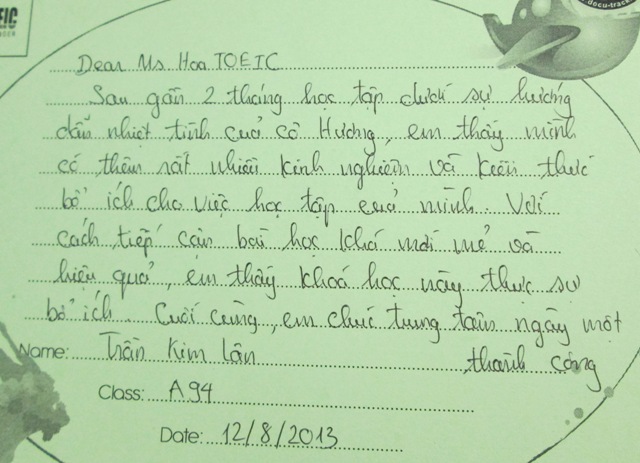 EIC
.docu-track.
Dear Ms Hoa TOEIC
Sau gần 2 tháng học tập dưới sự hướng
dẫn nhiệt tình của cô Hương, em thấy mình
có thêm rất nhiều kinh nghiệm và kiến thức
bổ ích cho việc học tập của mình. Với
cách tiếp cận bài học khá mới mẻ và
hiệu quả, em thấy khoá học này thực sự
bổ ích. Cuối cùng, em chúc trung tâm ngày một
thành công
Name: Trần Kim Lân
Class: A94
Date: 12/8/2013